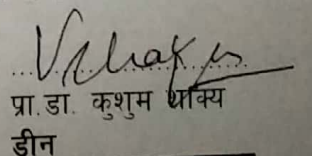 प्रा. डा. कुशुम शाक्य
डीन